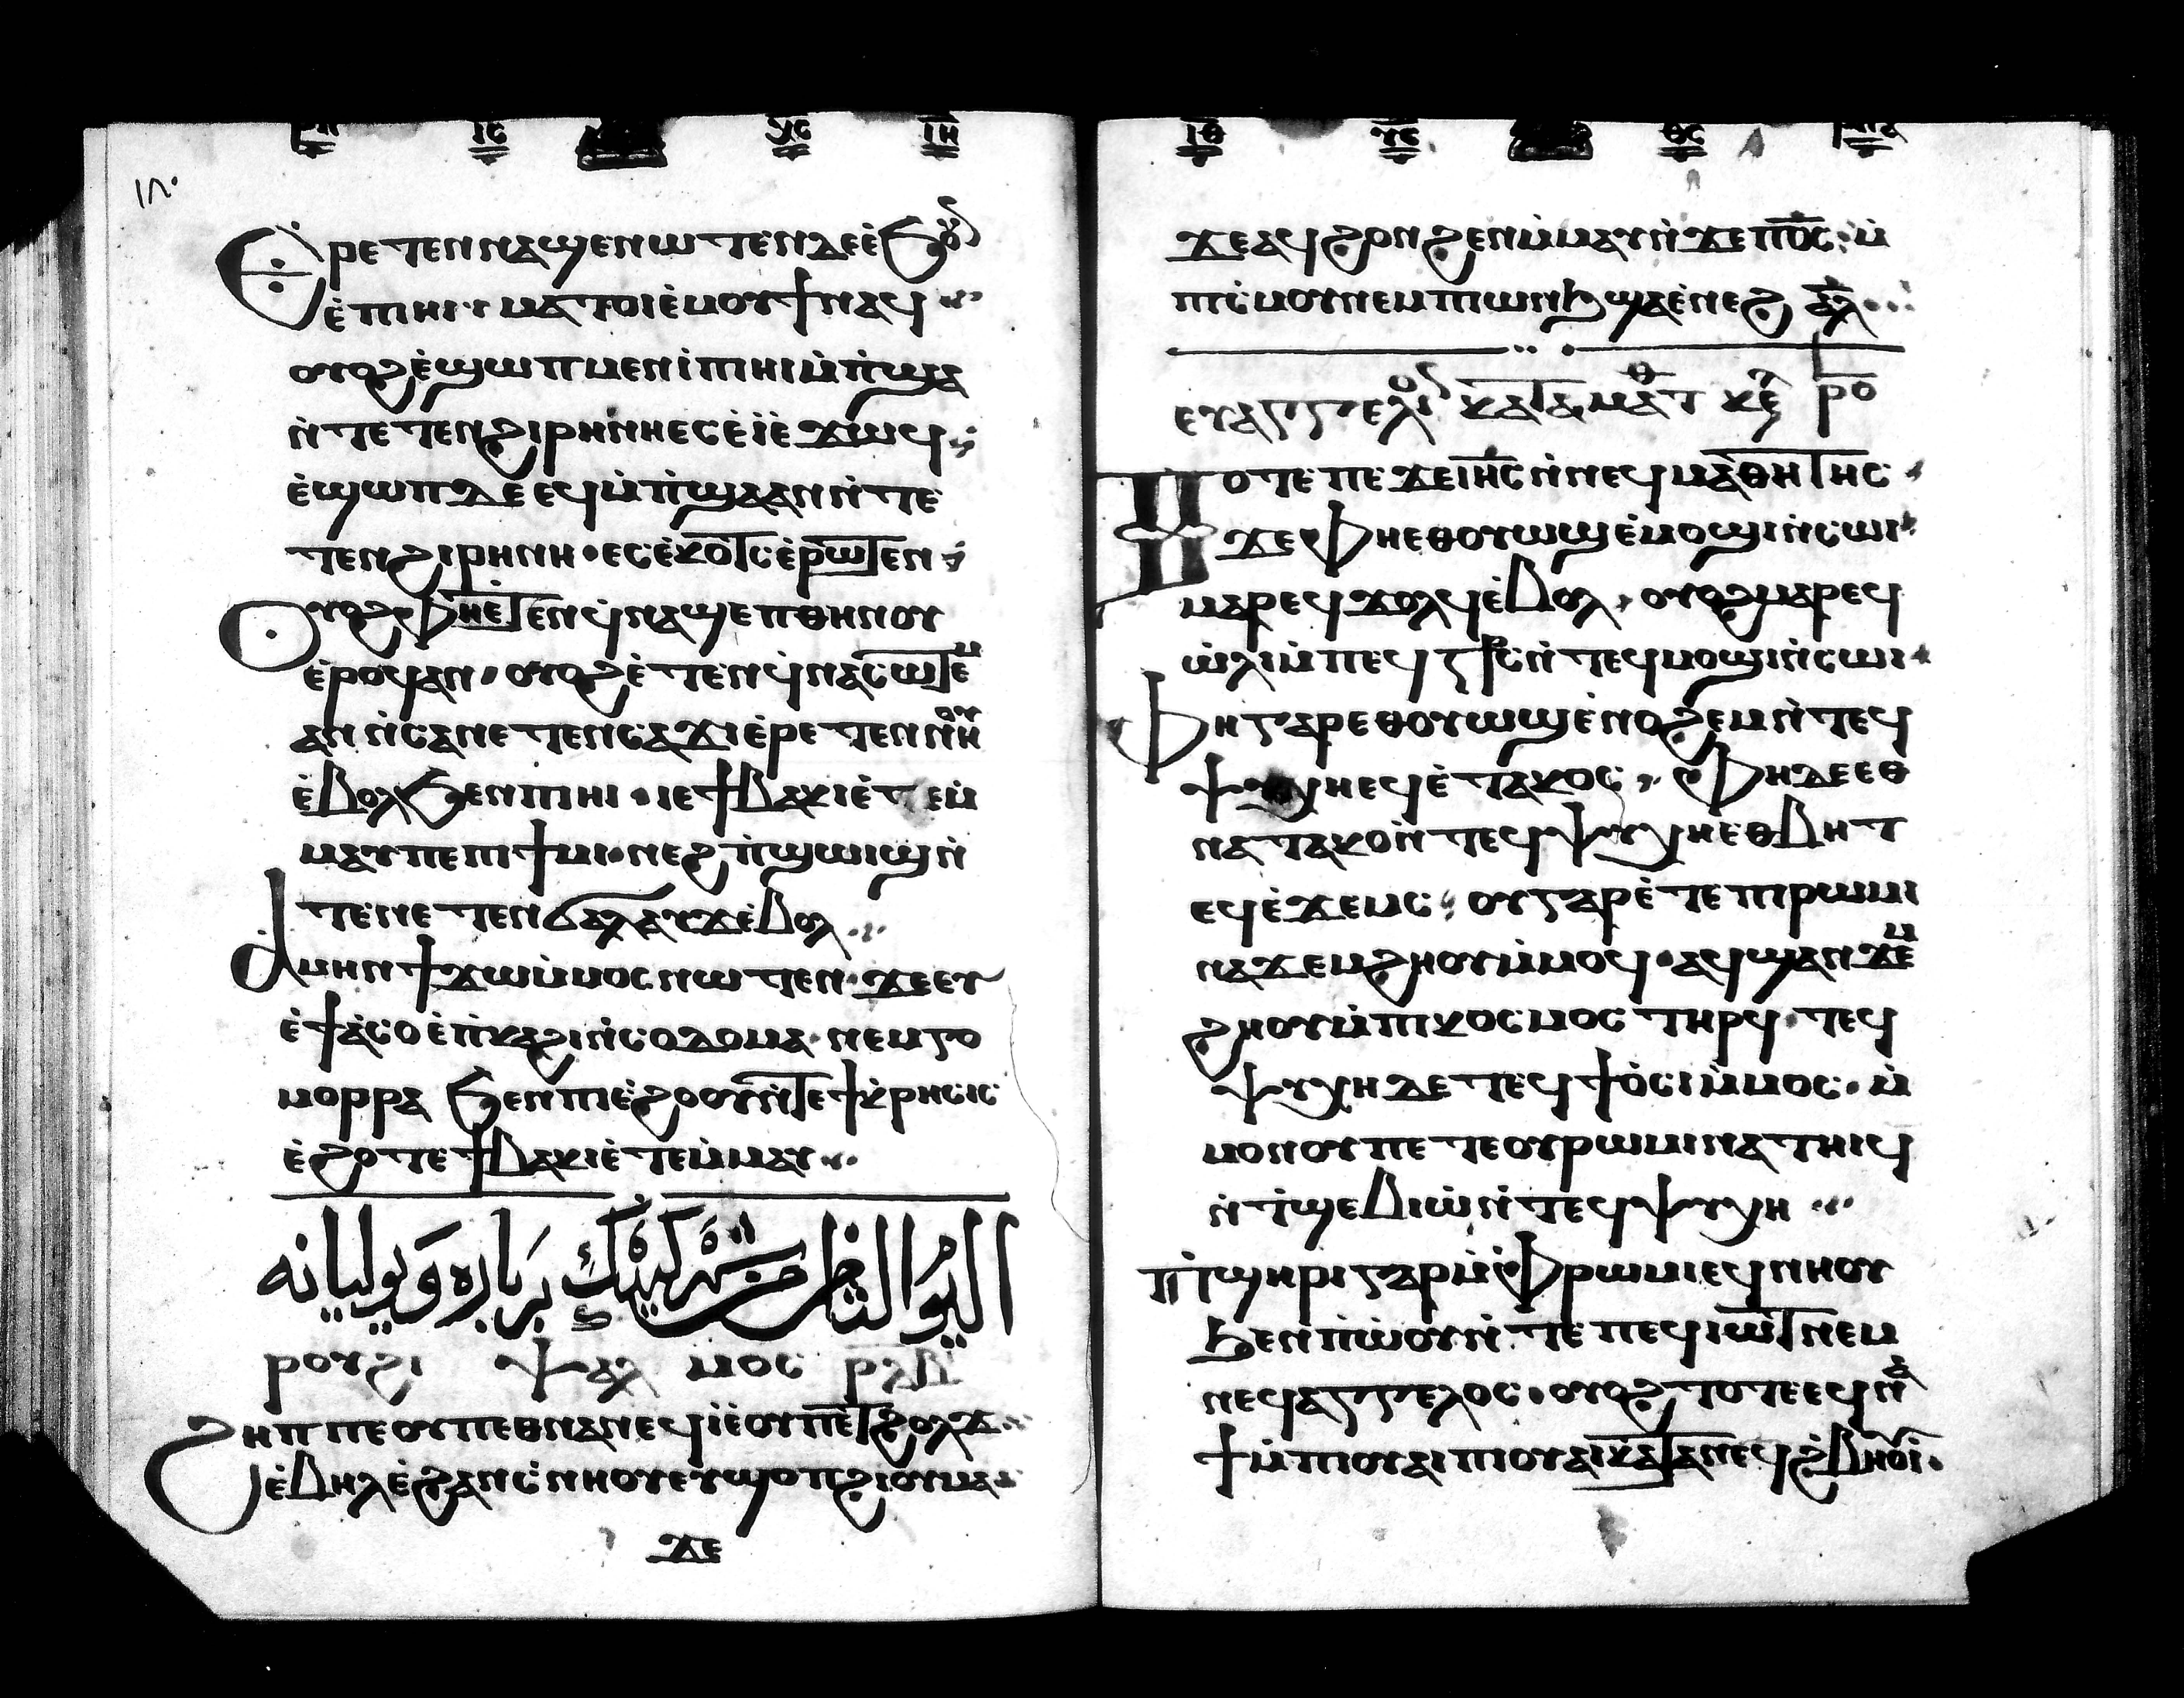 ⲣⲡ ⲓⲥ ⲩⲥ ⲓⲏ
١٨٠
Ⲉⲣⲉⲧⲉⲛⲛⲁϣⲉⲛⲱⲧⲉⲛⲇⲉⲉ̀ϧⲟⲩ
ⲉ̀ⲡⲓⲏⲓ· ⲙⲁⲧⲟⲓⲉ̀ⲙⲟⲩϯⲛⲁϥ
ⲟⲩⲟϩⲉ̀ϣⲱⲡⲙⲉⲛⲓ̀ⲡⲓⲏⲓⲙ̀ⲡ̀ϣⲁ
ⲛ̀ⲧⲉⲧⲉⲛϩⲓⲣⲏⲛⲏⲉⲥⲉ̀ⲓ̀ⲉ̀ϫⲱϥ
ⲉ̀ϣⲱⲡⲇⲉⲉϥⲙ̀ⲡ̀ϣⲁⲁⲛⲛ̀ⲧⲉ
ⲧⲉⲛϩⲓⲣⲏⲛⲏ·ⲉⲥⲉ̀ⲕⲟⲧⲥⲉ̀ⲣⲱⲧⲉⲛ
Ⲟⲩⲟϩⲫⲏⲉⲧⲉⲛϥ̀ⲛⲁϣⲉⲡⲑⲏⲛⲟⲩ
ⲉ̀ⲣⲟϥⲁⲛ ⲟⲩⲟϩⲉ̀ⲧⲉⲛϥ̀ⲛⲁⲥⲱⲧⲉⲙ
ⲁⲛⲛ̀ⲥⲁⲛⲉⲧⲉⲛⲥⲁϫⲓⲉ̀ⲣⲉⲧⲉⲛⲛⲏⲟⲩ
ⲉ̀ⲃⲟⲗϧⲉⲛⲡⲓⲏⲓ·ⲓⲉϯⲃⲁⲕⲓⲉ̀ⲧⲉⲙ̀
ⲙⲁⲩⲡⲉⲡⲓϯⲙⲓ·ⲛⲉϩⲡ̀ϣⲱⲓϣⲛ̀
ⲧⲉⲛⲉⲧⲉⲛϭⲁⲗⲁⲩϫⲉ̀ⲃⲟⲗ
Ⲁⲙⲏⲛϯϫⲱⲙ̀ⲙⲟⲥⲛⲱⲧⲉⲛ·ϫⲉⲉⲩ
ⲉ̀ϯⲁ̀ⲥⲟⲉ̀ⲡ̀ⲕⲁϩⲓⲛ̀ⲥⲟⲇⲟⲙⲁ·ⲛⲉⲙⲅⲟ
ⲙⲟⲣⲣⲁ ϧⲉⲛⲡⲓⲉ̀ϩⲟⲟⲩⲛ̀ⲧⲉϯⲕ̀ⲣⲏⲥⲓⲥ
ⲉ̀ϩⲟⲧⲉϯⲃⲁⲕⲓⲉ̀ⲧⲉⲙ̀ⲙⲁⲩ
اليوُم الثامِن مِن شهر كيهك بربَاره وَيوليانه
ⲣⲟⲩϩⲓ ⲯⲁⲗⲙⲟⲥ ⲣⲗⲃ
ϩⲏⲡⲡⲉⲟⲩⲡⲉⲑⲛⲁⲛⲉϥⲓⲉ̀ⲟⲩⲡⲉⲧϩⲟⲗϫ
ⲉ̀ⲃⲏⲗⲉ̀ϩⲁⲛⲥ̀ⲛⲏⲟⲩⲉⲩϣⲟⲡϩⲓⲟⲩⲙⲁ
ϫⲉ
ⲓⲑ ⲩⲥ ⲑⲥ ⲣⲡⲁ
ϫⲉⲁϥϩⲟⲛϩⲉⲛⲙ̀ⲙⲁⲩⲛ̀ϫⲉⲡⲟ̅ⲥ̅:ⲙ̀
ⲡⲓⲥ̀ⲙⲟⲩⲛⲉⲙⲡⲓⲱⲛϧϣⲁⲉ̀ⲛⲉϩ ⲁⲗ
ⲉⲩⲁⲅⲅⲉⲗⲓⲟⲩ ⲕⲁⲧⲁⲙⲁⲧⲑ ⲕⲉⲫ ⲣⲟ
Ⲧⲟⲧⲉⲡⲉϫⲉⲓⲏ̅ⲥ̅ⲛ̀ⲛⲉϥⲙⲁⲑⲏⲧⲏⲥ
ϫⲉⲫⲏⲉⲑⲟⲩⲱϣⲉ̀ⲙⲟϣⲓⲛ̀ⲥⲱⲓ
ⲙⲁⲣⲉϥϫⲟⲗϥⲉ̀ⲃⲟⲗ, ⲟⲩⲟϩⲙⲁⲣⲉϥ
ⲱ̀ⲗⲓⲙ̀ⲡⲉϥⲥ̅ⲣ̅ⲥ̅ⲛ̀ⲧⲉϥⲙⲟϣⲓⲛ̀ⲥⲱⲓ
Ⲫⲏⲅⲁⲣⲉⲑⲟⲩⲱϣⲉ̀ⲛⲟϩⲉⲙⲛ̀ⲧⲉϥ
ⲯⲩⲭⲏⲉϥⲉ̀ⲧⲁⲕⲟⲥ, ⲫⲏⲇⲉⲉⲑ
ⲛⲁⲧⲁⲕⲟⲛ̀ⲧⲉϥⲯⲩⲭⲏⲉⲑⲃⲏⲧ
ⲉϥⲉ̀ϫⲉⲙⲥ ⲟⲩⲅⲁⲣⲉ̀ⲧⲉⲡⲓⲣⲱⲙⲓ
ⲛⲁϫⲉⲙϩⲏⲟⲩⲙ̀ⲙⲟϥ·ⲁϥϣⲁⲛϫⲉⲙ
ϩⲏⲟⲩⲙ̀ⲡⲓⲕⲟⲥⲙⲟⲥⲧⲏⲣϥ·ⲧⲉϥ
ⲯⲩⲭⲏⲇⲉⲧⲉϥϯⲟ̀ⲥⲓⲙ̀ⲙⲟⲥ·ⲙ̀
ⲙⲟⲛⲟⲩⲡⲉⲧⲉⲟⲩⲣⲱⲙⲓⲛⲁⲧⲏⲓϥ
ⲛ̀ⲧ̀ϣⲉⲃⲓⲱ̀ⲛ̀ⲧⲉϥⲯⲩⲭⲏ
Ⲡ̀ϣⲏⲣⲓⲅⲁⲣⲙ̀ⲫⲣⲱⲙⲓⲉϥⲛⲏⲟⲩ
ϧⲉⲛⲡ̀ⲱⲟⲩⲛ̀ⲧⲉⲡⲉϥⲓⲱⲧⲛⲉⲙ
ⲛⲉϥⲁⲅⲅⲉⲗⲟⲥ·ⲟⲩⲟϩⲧⲟⲧⲉⲉϥⲛⲁ
ϯⲙ̀ⲡⲓⲟⲩⲁⲓⲡⲓⲟⲩⲁⲓⲕⲁⲧⲁⲛⲉϥϩ̀ⲃⲏⲟⲩⲓ̀